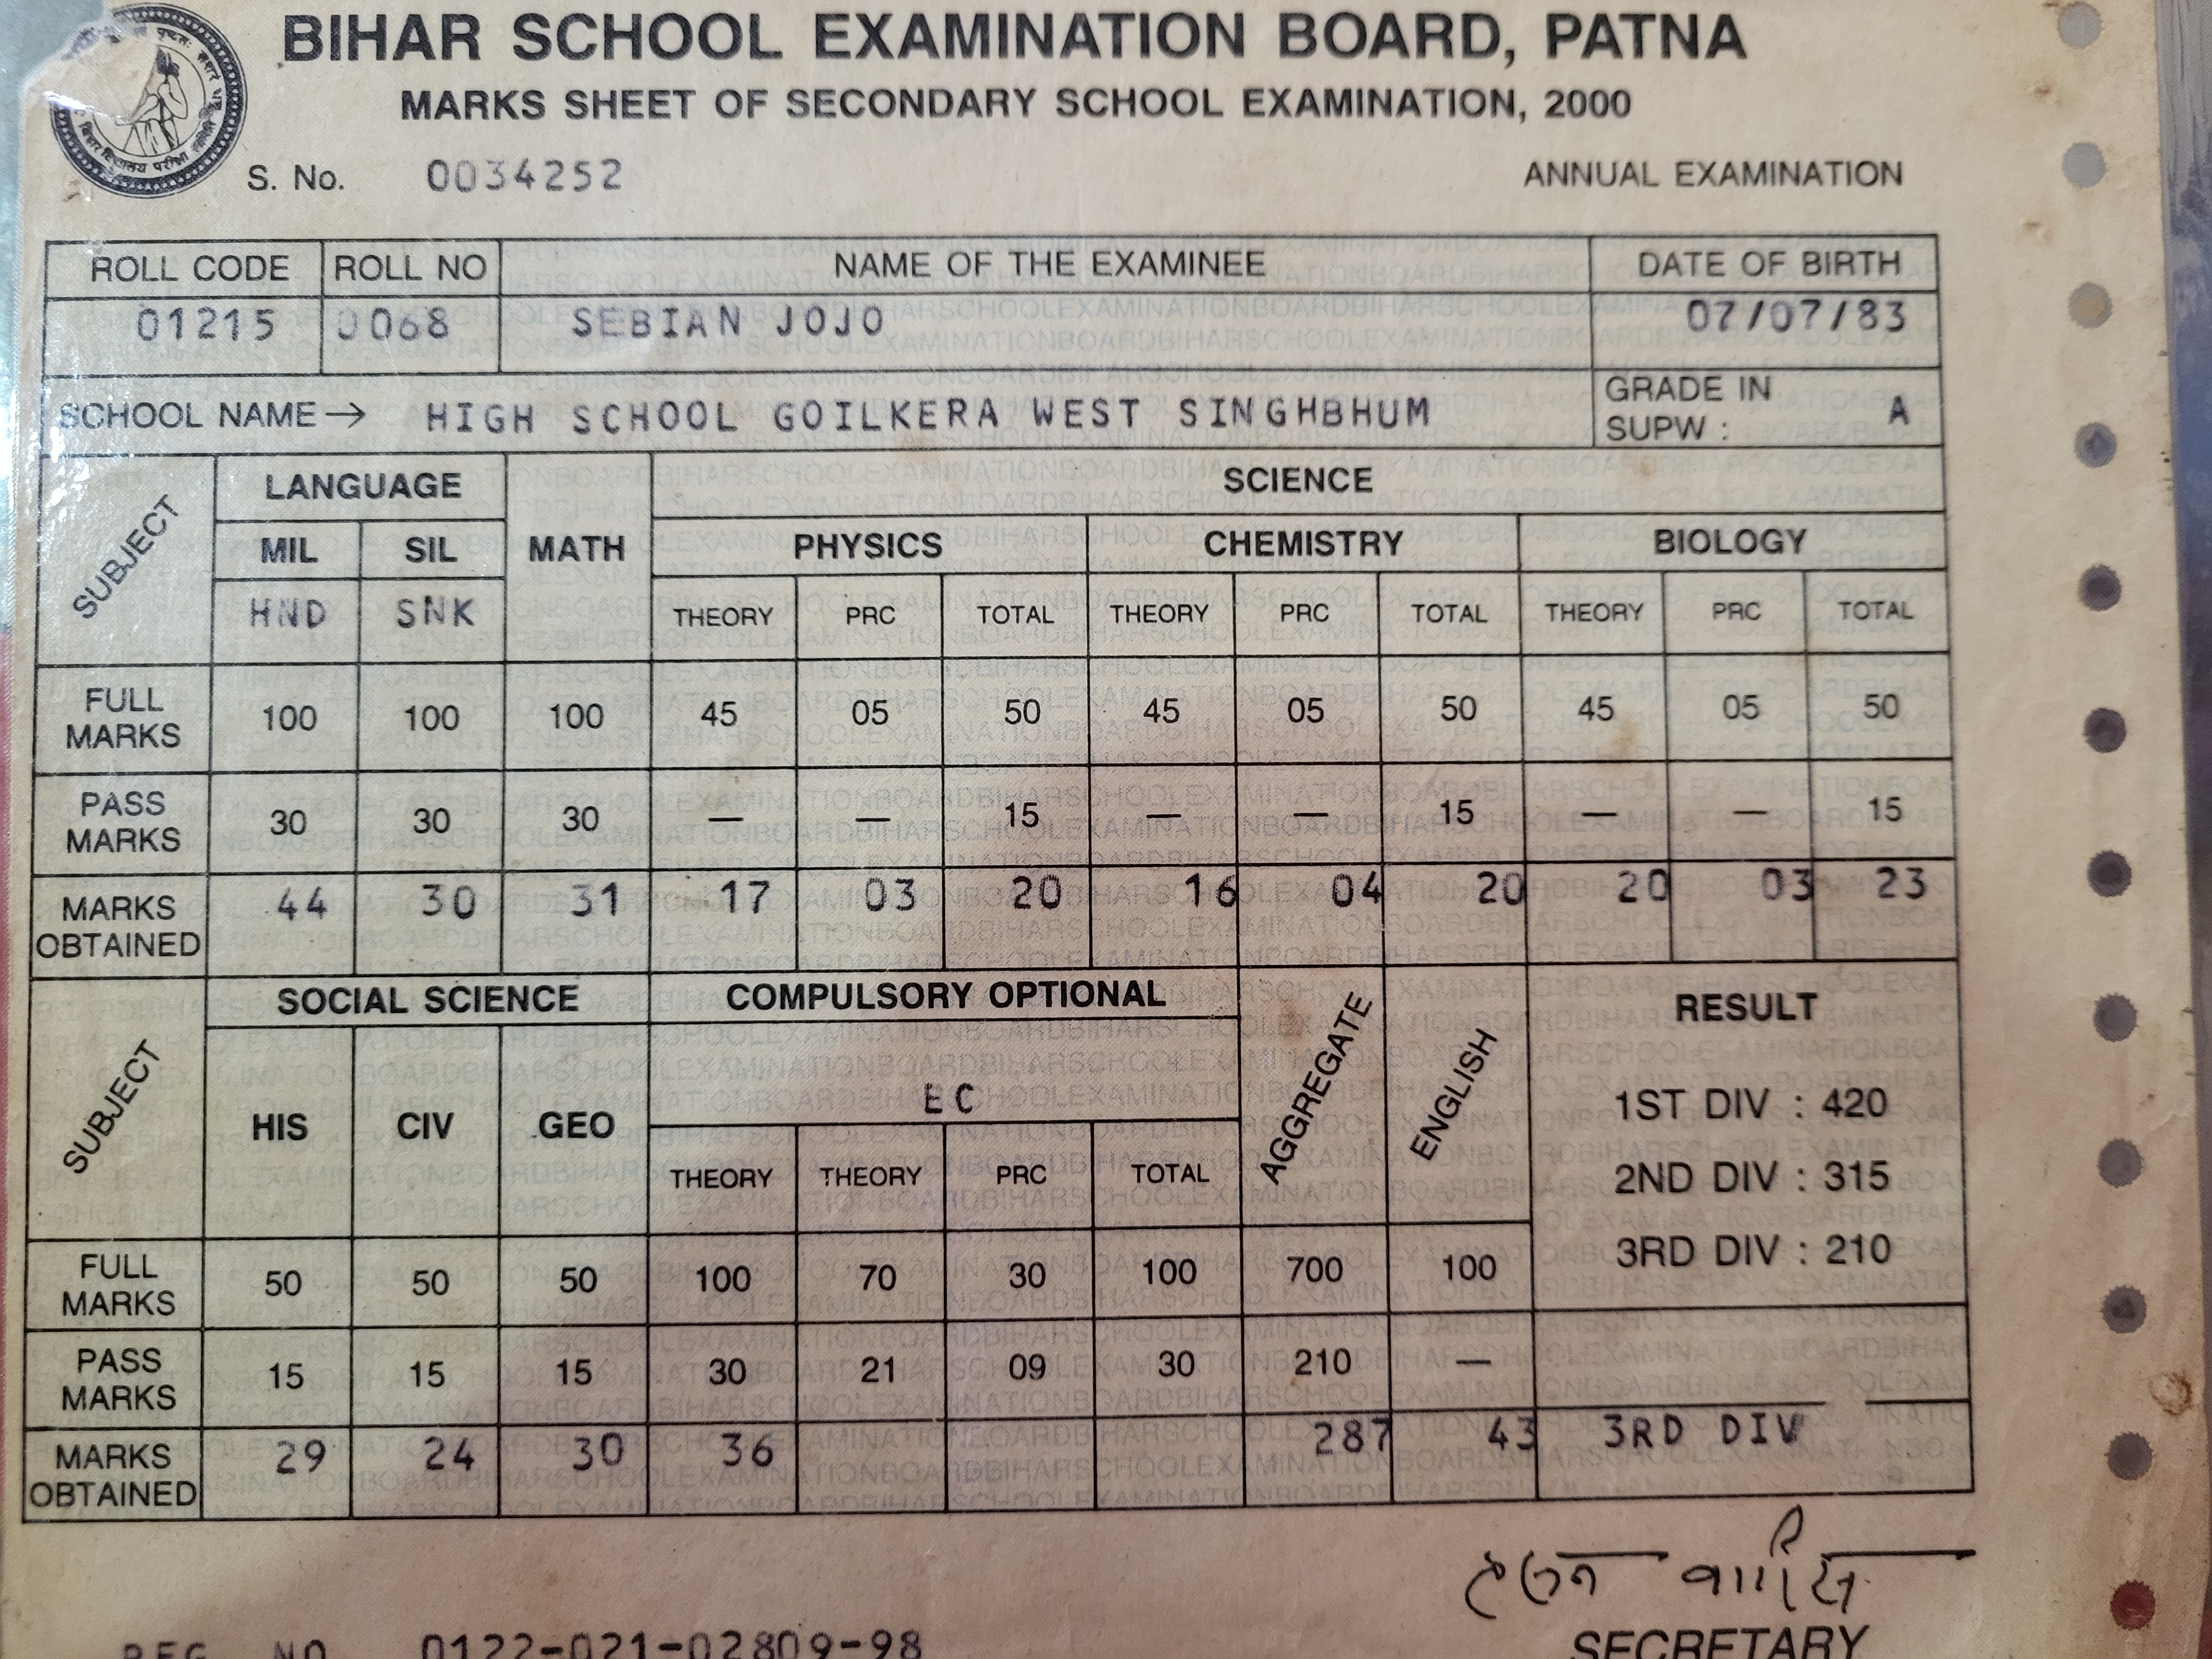 BIHAR SCHOOL EXAMINATION BOARD, PATNA
MARKS SHEET OF SECONDARY SCHOOL EXAMINATION, 2000
S. No. 0034252 ANNUAL EXAMINATION
ROLL CODE ROLL NO NAME OF THE EXAMINEE DATE OF BIRTH
01215 0068 SEBIAN JOJO 07/07/83
SCHOOL NAME → HIGH SCHOOL GOILKERA WEST SINGHBHUM GRADE IN SUPW : A
SUBJECT LANGUAGE MATH SCIENCE
MIL SIL PHYSICS CHEMISTRY BIOLOGY
HND SNK THEORY PRC TOTAL THEORY PRC TOTAL THEORY PRC TOTAL
FULL MARKS 100 100 100 45 05 50 45 05 50 45 05 50
PASS MARKS 30 30 30 — — 15 — — 15 — — 15
MARKS OBTAINED 44 30 31 17 03 20 16 04 20 20 03 23
SUBJECT SOCIAL SCIENCE COMPULSORY OPTIONAL AGGREGATE ENGLISH RESULT
HIS CIV GEO EC 1ST DIV : 420
THEORY THEORY PRC TOTAL 2ND DIV : 315
3RD DIV : 210
FULL MARKS 50 50 50 100 70 30 100 700 100
PASS MARKS 15 15 15 30 21 09 30 210 —
MARKS OBTAINED 29 24 30 36 287 43 3RD DIV
REG. NO 0122-021-02809-98 SECRETARY